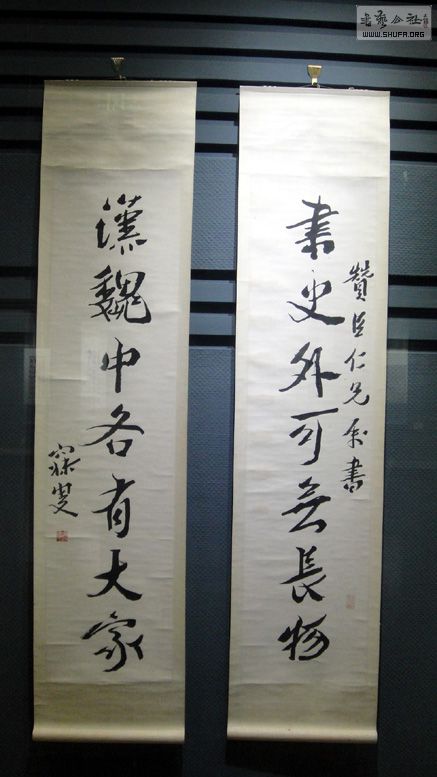 書藝公社
WWW.SHUFA.ORG
贊臣仁兄屬書
書史外可無長物
漢魏中各有大家
寐叟